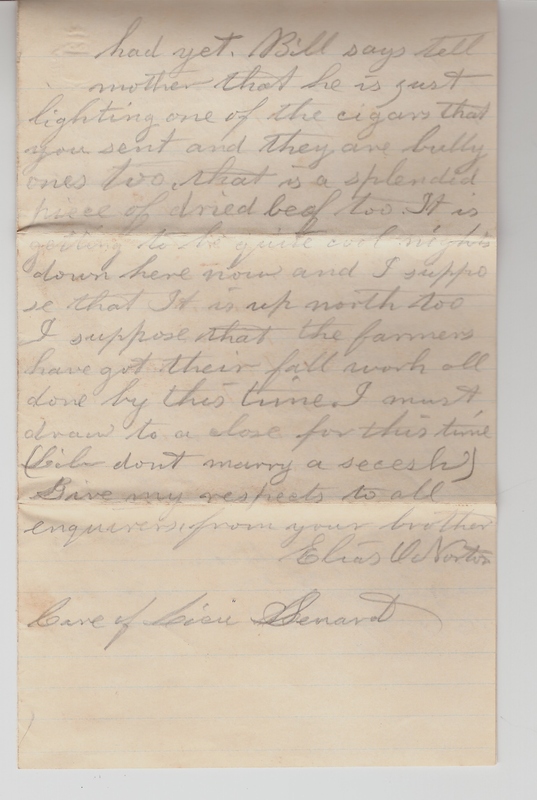 had yet. Bill says tell
mother that he is just
lighting one of the cigars that
you sent and they are bully
ones too, that is a splendid
piece of dried beef too. It is
getting to be quite cool nights
down here now and I suppo
se that It is up north too
I suppose that the farmers
have got their fall work all
done by this time. I must
draw to a close for this time
(Lib dont marry a secesh)
Give my respects to all
enquirers, from your brother
Elias Norton
Care of